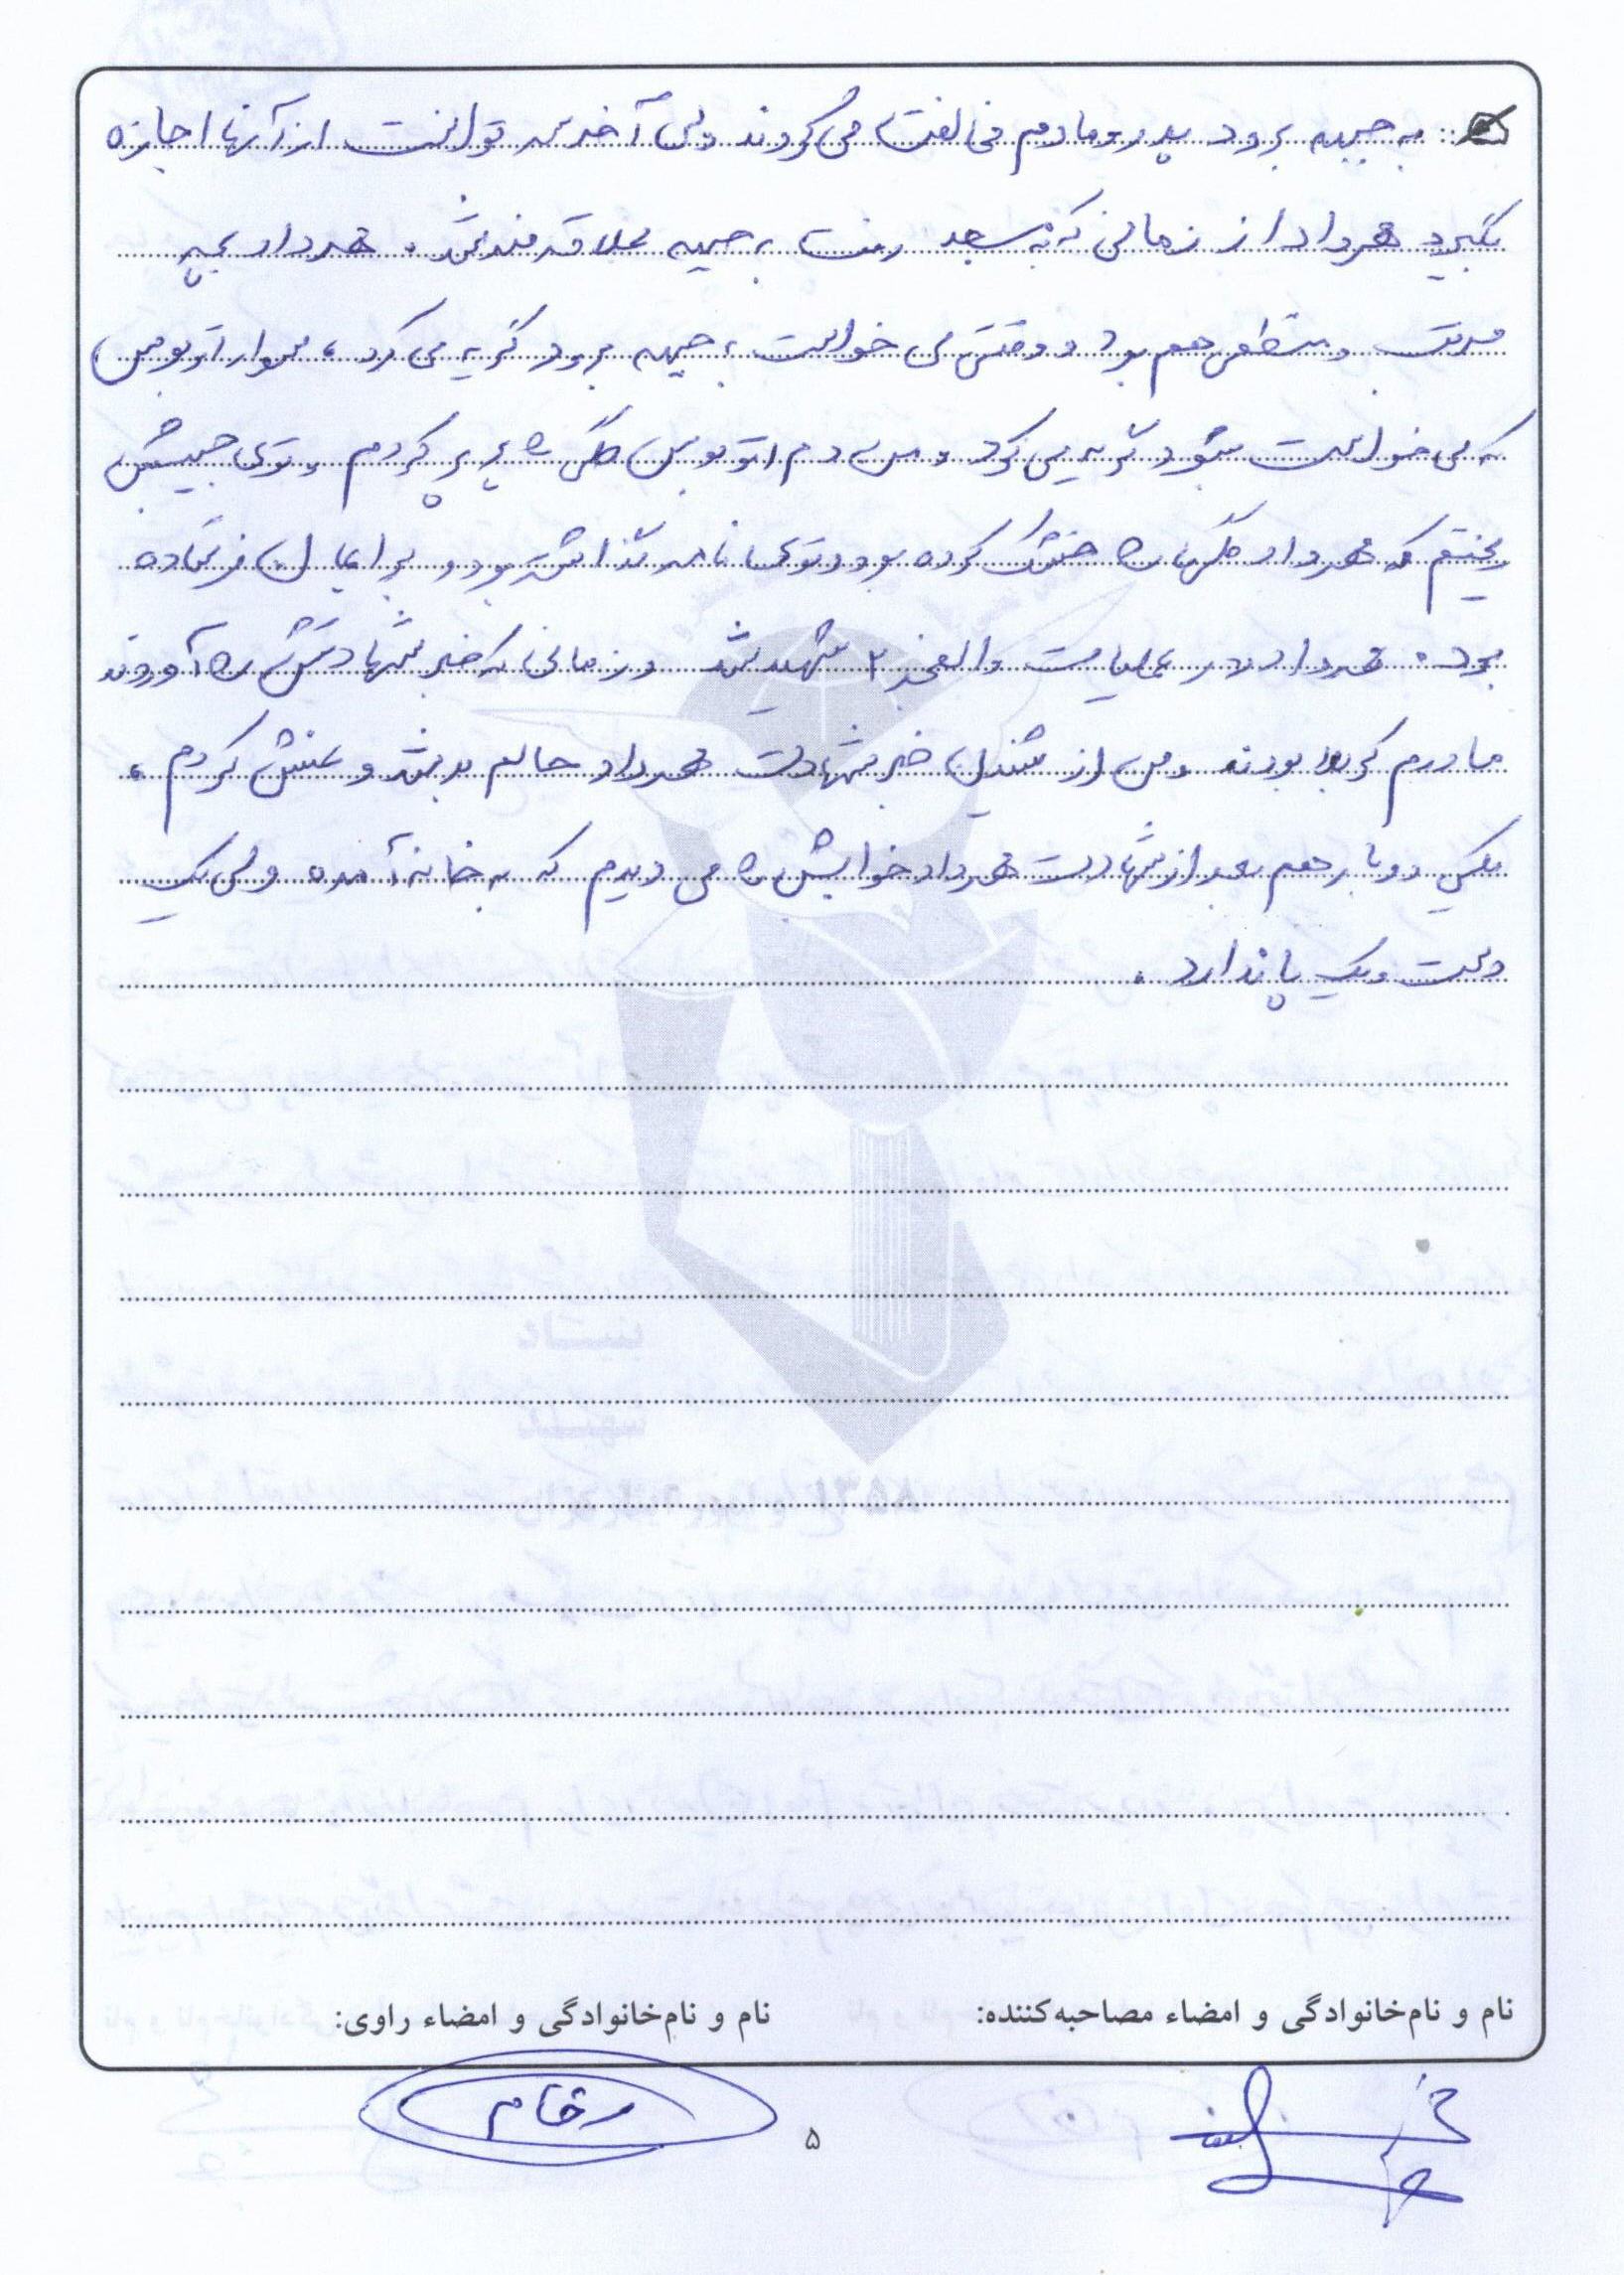 به جبهه برود پدر و مادرم مخالفت می‌کردند ولی آخر سر توانست از آنها اجازه
بگیرد مهرداد از زمانی که به مسجد رفت به جبهه علاقه‌مند شد. مهرداد بچه
مرتب و منظمی هم بود و وقتی می خواست به جبهه برود گریه می کرد، سوار اتوبوس
که می خواست بشود گریه می کرد و من دم اتوبوس گلی را پرپر کردم و توی جیبش
ریختم که مهرداد گلها را خشک کرده بود و توی نامه گذاشته بود و برایمان فرستاده
بود. مهرداد در عملیات والفجر ۲ شهید شد و زمانی که خبر شهادتش را آوردند
مادرم کربلا بودند و من از شنیدن خبر شهادت مهرداد حالم بد شد و غش کردم.
یکی دو بار هم بعد از شهادت مهرداد خوابش را می دیدم که به خانه آمده ولی یک
دست و یک پا ندارد.
نام و نام‌خانوادگی و امضاء مصاحبه‌کننده: نام و نام‌خانوادگی و امضاء راوی:
۵